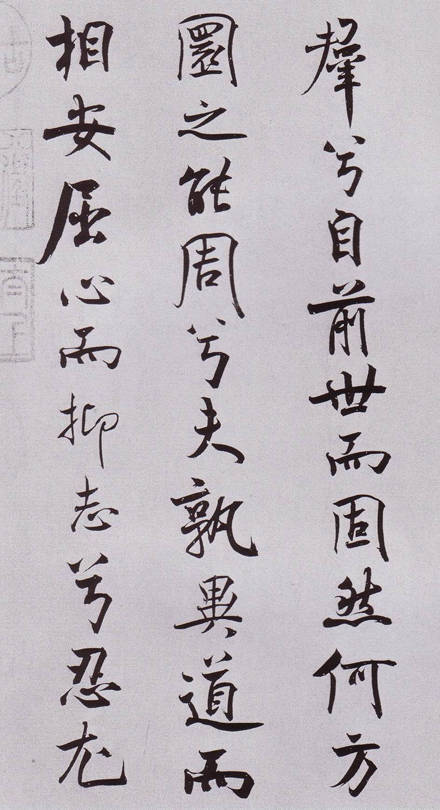 羣兮自前世而固然何方
圜之能周兮夫孰異道而
相安屈心而抑志兮忍尤